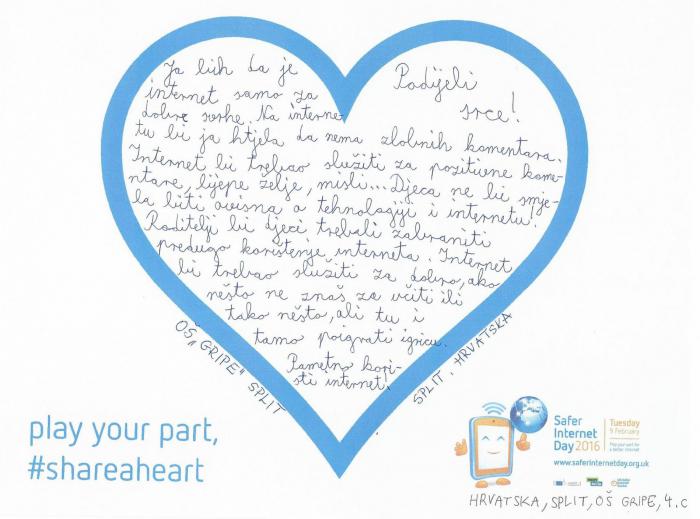 Ja bih da je
internet samo za
dobre svrhe. Na interne-
tu bi ja htjela da nema zlobnih komentara.
Internet bi trebao služiti za pozitivne kome-
ntare, lijepe želje, misli... Djeca ne bi smje-
la biti ovisna o tehnologiji i internetu!
Roditelji bi djeci trebali zabraniti
predugo korištenje interneta. Internet
bi trebao služiti za dobro, ako
nešto ne znaš za učiti ili
tako nešto, ali tu i
tamo poigrati igricu.
Pametno kori-
sti internet.
Podijeli
srce!
OŠ „GRIPE" SPLIT
SPLIT, HRVATSKA
play your part,
#shareaheart
Safer
Internet
Day 2016
Tuesday
9 February
Play your part for
a better internet
www.saferinternetday.org.uk
HRVATSKA, SPLIT, OŠ GRIPE, 4.c